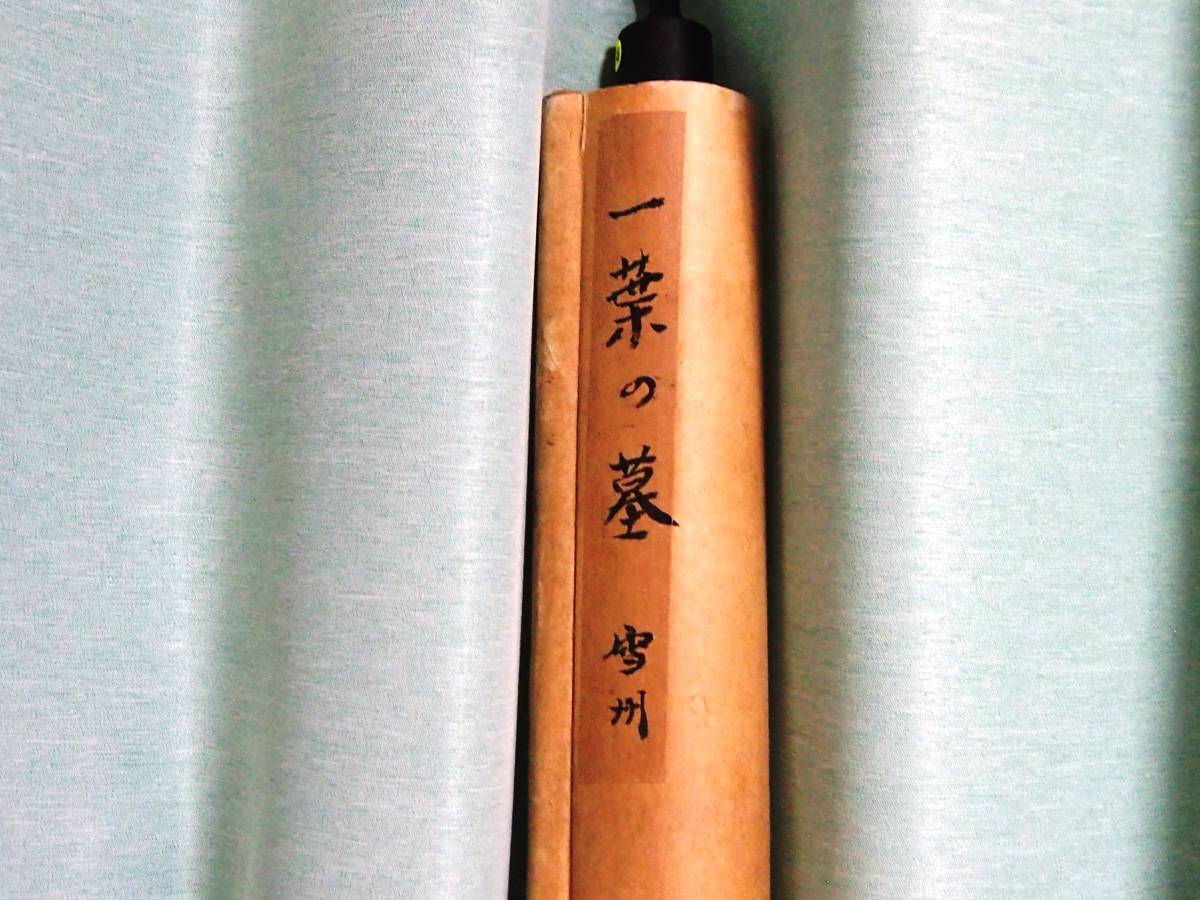 一葉の墓 雪州